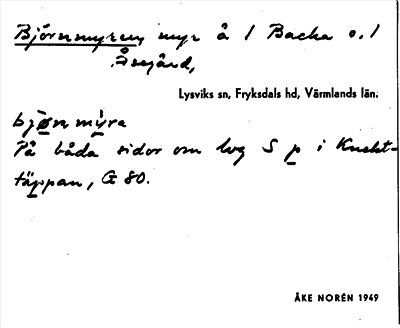 Björnmyren, myr å 1 Backa o. 1
Åsegård,
Lysviks sn, Fryksdals hd, Värmlands län.
bjø̱nmy̱ra
På båda sidor om lvg S p i Knekt-
täppan, G 80.
ÅKE NORÉN 1949